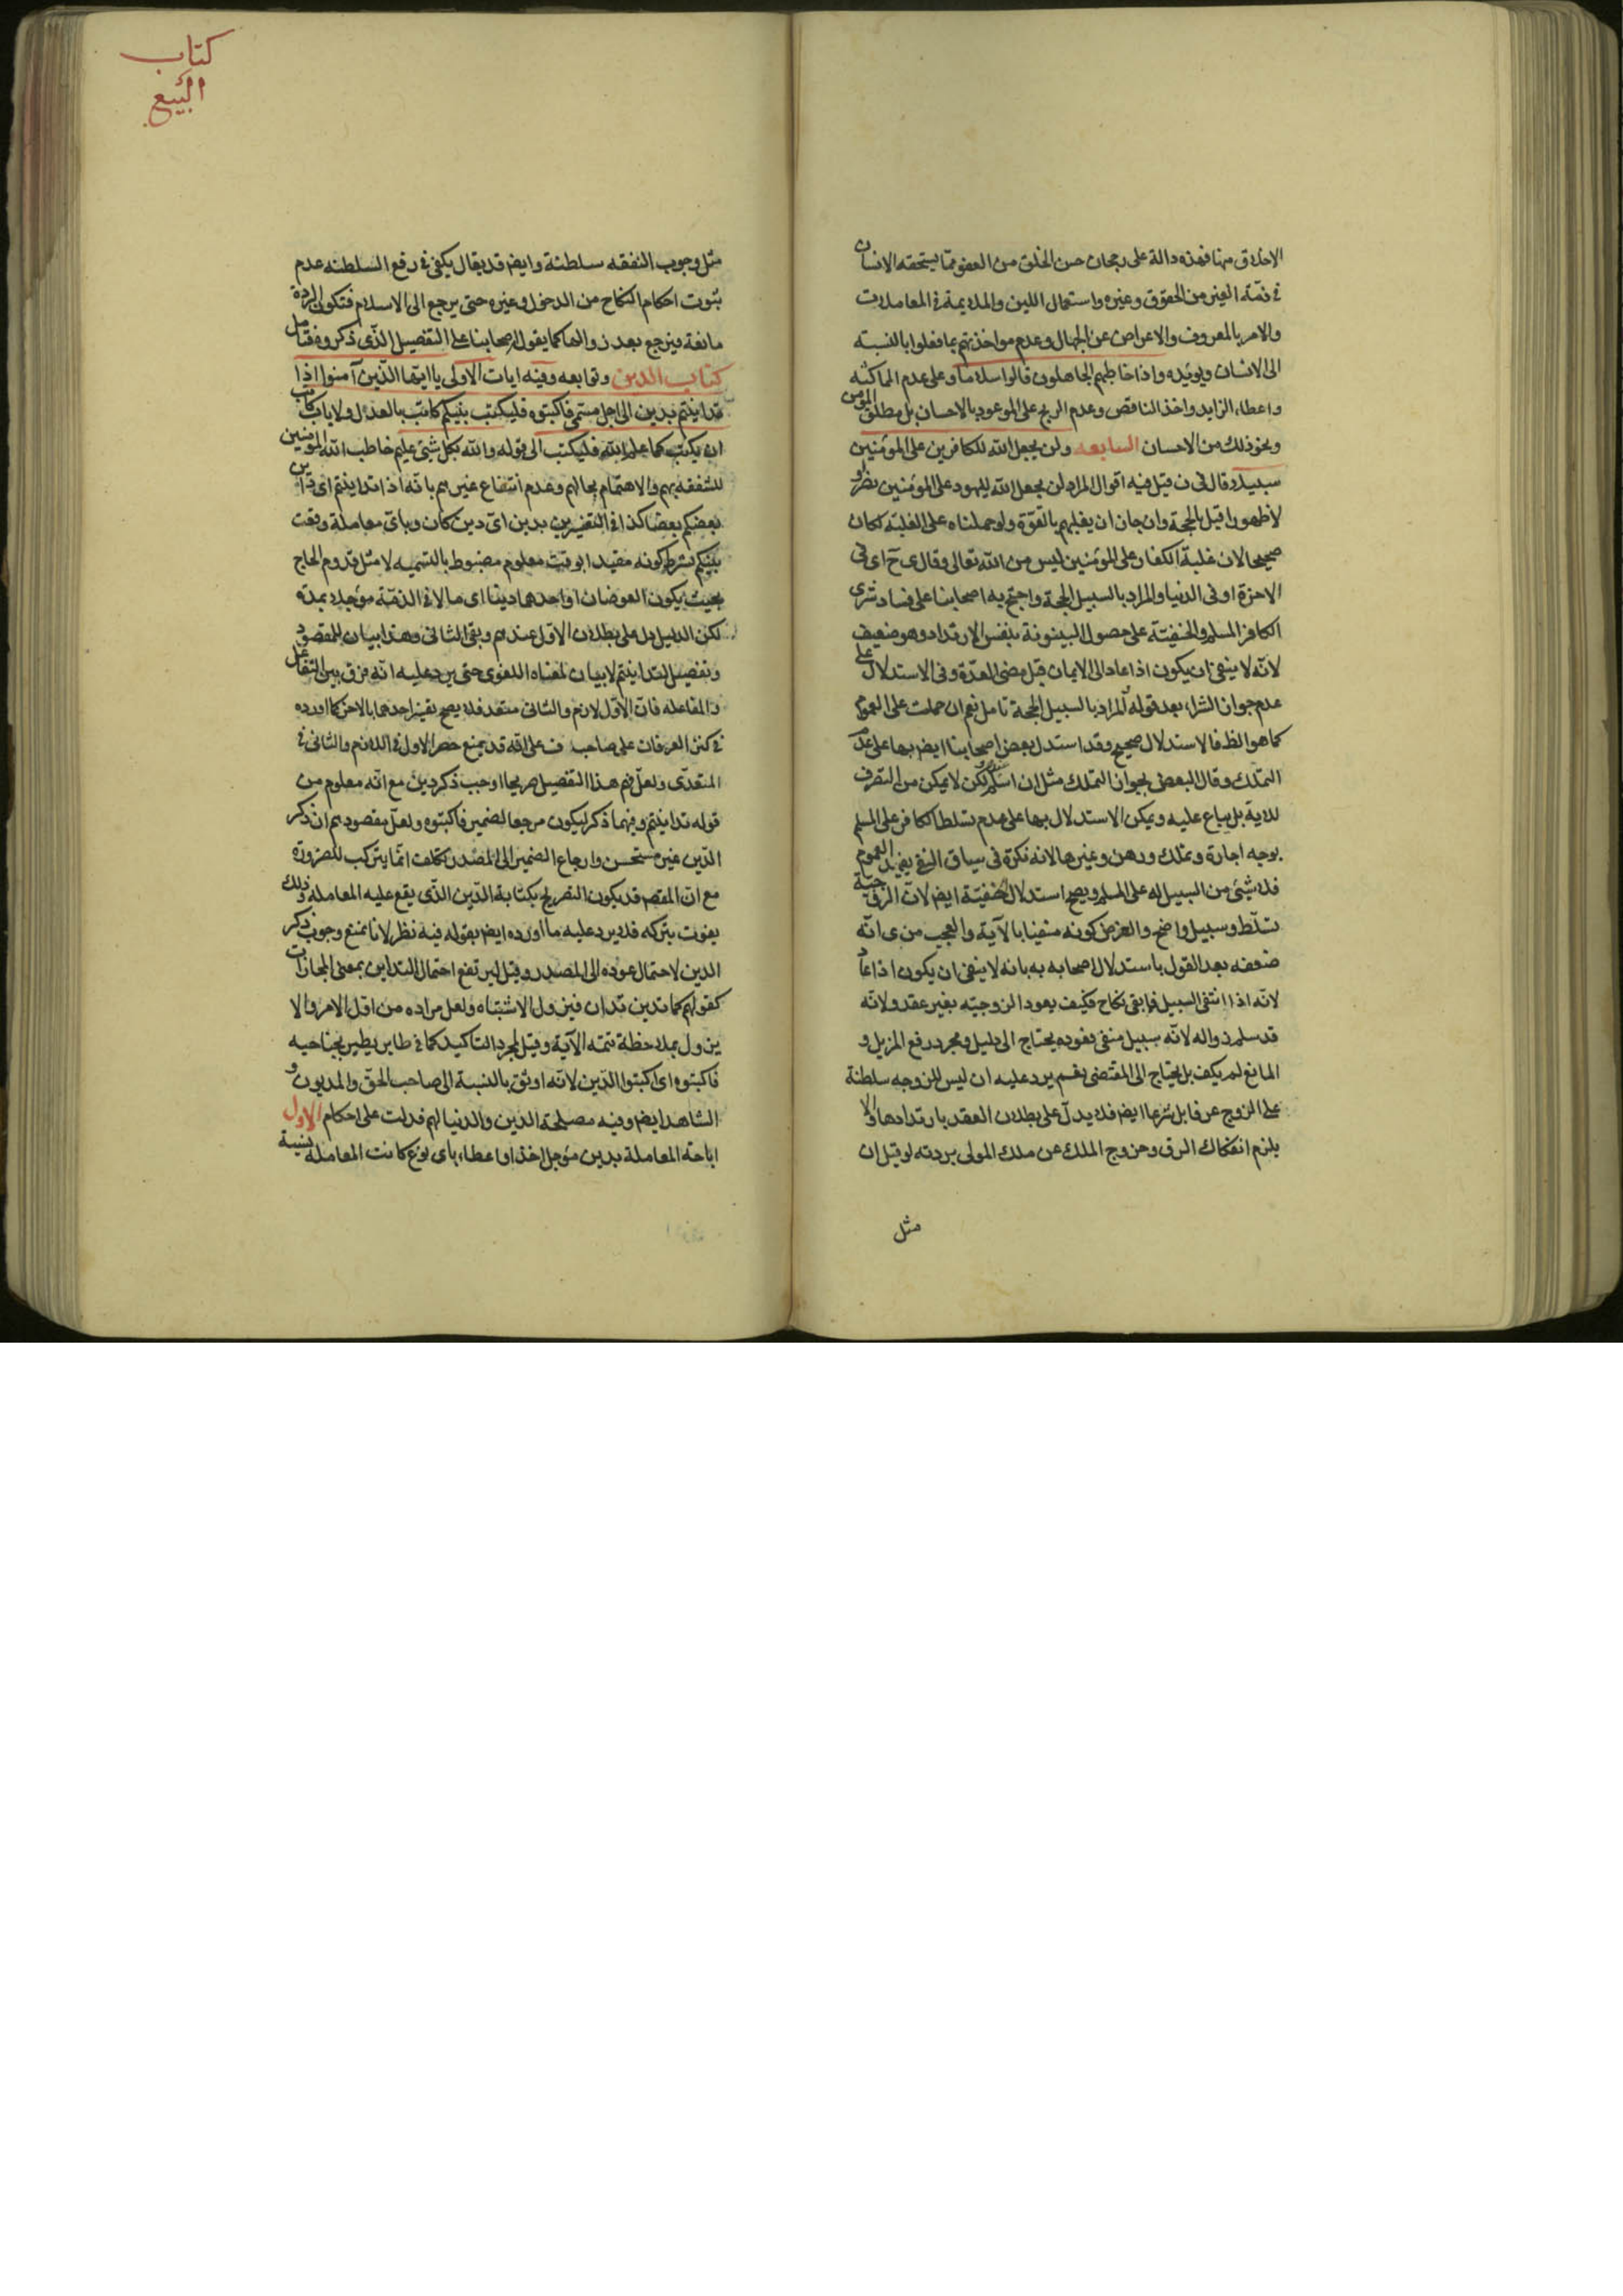 الاخلاق منها فهذه دالة على رجحان حسن الخلق من العفو مما يستحقه الانسان
فى ذمّة الغير من الحقوق وغيره واستعمال اللين والملايمة فى المعاملات
والامر بالمعروف والاعراض عن الجهال وعدم مواخذتهم بما فعلوا بالنسبة
الى الانسان ويؤيده واذا خاطبهم الجاهلون قالوا سلاما وعلى عدم المماكسة
واعطاء الزايد واخذ الناقص وعدم الربح على الموعود بالاحسان بل مطلق المؤمن
ونحو ذلك من الاحسان السابعه ولن يجعل الله للكافرين على المؤمنين
سبيلا وقال فى ن قيل فيه اقوال المراد لن يجعل الله لليهود على المؤمنين نظرا و
لا ظهورا قيل بالحجة وان جاز ان يغلبهم بالقوة ولو حملناه على الغلبة لكان
صحيحا لان غلبة الكفار على المؤمنين ليس من الله تعالى وقال ى ح اى فى
الاخرة او فى الدنيا والمراد بالسبيل الحجة واحتج به اصحابنا على فساد شرى
الكافر المسلم والحنفيّة على حصول البينونة بنفس الارتداد وهو ضعيف
لانّه لا ينفى ان يكون اذا عاد الى الايمان قبل مضى العدّة وفى الاستدلال على
عدم جواز الشراء بعد قوله المراد بالسبيل الحجة تامل نعم ان حملت على العموم
كما هو الظ فالاستدلال صحيح وقد استدل بعض اصحابنا ايضا بها على عدم
التملك وقال البعض بجواز التملك مثل ان اسلم لكن لا يمكن من التصرف
للاية بل يباع عليه ويمكن الاستدلال بها على عدم تسلط الكافر على المسلم
بوجه اجارة وتملك ورهن وغيرها لانه نكرة فى سياق النفى يفيد العموم
فلا شئ من السبيل له على المسلم ويصح استدلال الحنفيّة ايضا لان الزوجيّة
تسلّط وسبيل واضح والغرض كونه منفيا بالآية والعجب من ى انّه
ضعفه بعد القول باستدلال اصحابه به بانه لا ينفى ان يكون اذا عاد
لانّه اذا انتفى السبيل فما بقى نكاح فكيف يعود الزوجيّه بغير عقد ولانّه
قد سلم زواله لانّه سبيل منفى فعوده يحتاج الى دليل ومجرد رفع المزيل و
المانع لم يكف بل يحتاج الى المقتضى نعم يرد عليه ان ليس للزوجه سلطنة
على الزوج عرفا بل شرعا ايضا فلا يدل على بطلان العقد بارتدادها والا
يلزم انفكاك الرق وخروج الملك عن ملك المولى بردته لو قيل ان
مثل
كتاب
البيع
مثل وجوب النفقه سلطنة وايضا قد يقال يكفى فى رفع السلطنه عدم
ثبوت احكام النكاح من الدخول وغيره حتى يرجع الى الاسلام فتكون الردة
مانعة فيرجع بعد زوالها كما يقول اصحابنا على التفصيل الذى ذكروه فتامل
كتاب الدين وتوابعه وفيه ايات الاولى يا ايها الذين آمنوا اذا
تداينتم بدين الى اجل مسمى فاكتبوه فليكتب بينكم كاتب بالعدل ولا ياب كاتب
ان يكتب كما علمه الله فليكتب الى قوله والله بكل شئ عليم خاطب الله المؤمنين
للشفقة بهم والاهتمام بحالهم وعدم انتفاع غيرهم بانّه اذا تداينتم اى داين
بعضكم بعضا كذا فى التفسيرين بدين اىّ دين كان وباىّ معاملة وقعت
بينكم بشرط كونه مقيدا بوقت معلوم مضبوط بالتسميه لا مثل قدوم الحاج
بحيث يكون العوضان او احدهما دينا اى مالا فى الذمّة مؤجلا بمدّة
لكن الدليل دل على بطلان الاول عندهم وبقى الثانى وهذا بيان للمقصود
وتفصيل لتداينتم لا بيان لمعناه اللغوى حتى يرد عليه انّه فرق بين التفاعل
والمفاعله فان الاوّل لازم والثانى متعد فلا يصح تفسير احدهما بالاخر كما اورده
فى كنز العرفان على صاحب ف على انّه قد يمنع حصر الاول فى اللازم والثانى فى
المتعدّى ولعلّ فهم هذا التفصيل صريحا اوجب ذكر دين مع انّه معلوم من
قوله تداينتم وفيهما ذكر ليكون مرجعا لضمير فاكتبوه ولعل مقصودهم ان ذكر
الدّين غير مستحسن وارجاع الضمير الى المصدر تكلف انّما يرتكب للضرورة
مع انّ المقصود قد يكون التصريح بكتابة الدّين الذّى يقع عليه المعاملة وذلك
يفوت بتركه فلا يرد عليه ما اورده ايضا بقوله فيه نظر لانا نمنع وجوب ذكر
الدين لاحتمال عوده الى المصدر وقيل ليرتفع احتمال التداين بمعنى المجازات
كقولهم كما تدين تدان فيزول الاشتباه ولعل مراده من اول الامر والا
يزول بملاحظة تتمة الآية وقيل لمجرد التاكيد كما فى طاير يطير بجناحيه
فاكتبوه اى اكتبوا الدّين لانّه اوثق بالنسبة الى صاحب الحق والمديون و
الشاهد ايضا وفيه مصلحة الدين والدنيا لهم فدلت على احكام الاول
اباحة المعاملة بدين مؤجل اخذا واعطاء باى نوع كانت المعاملة نسية